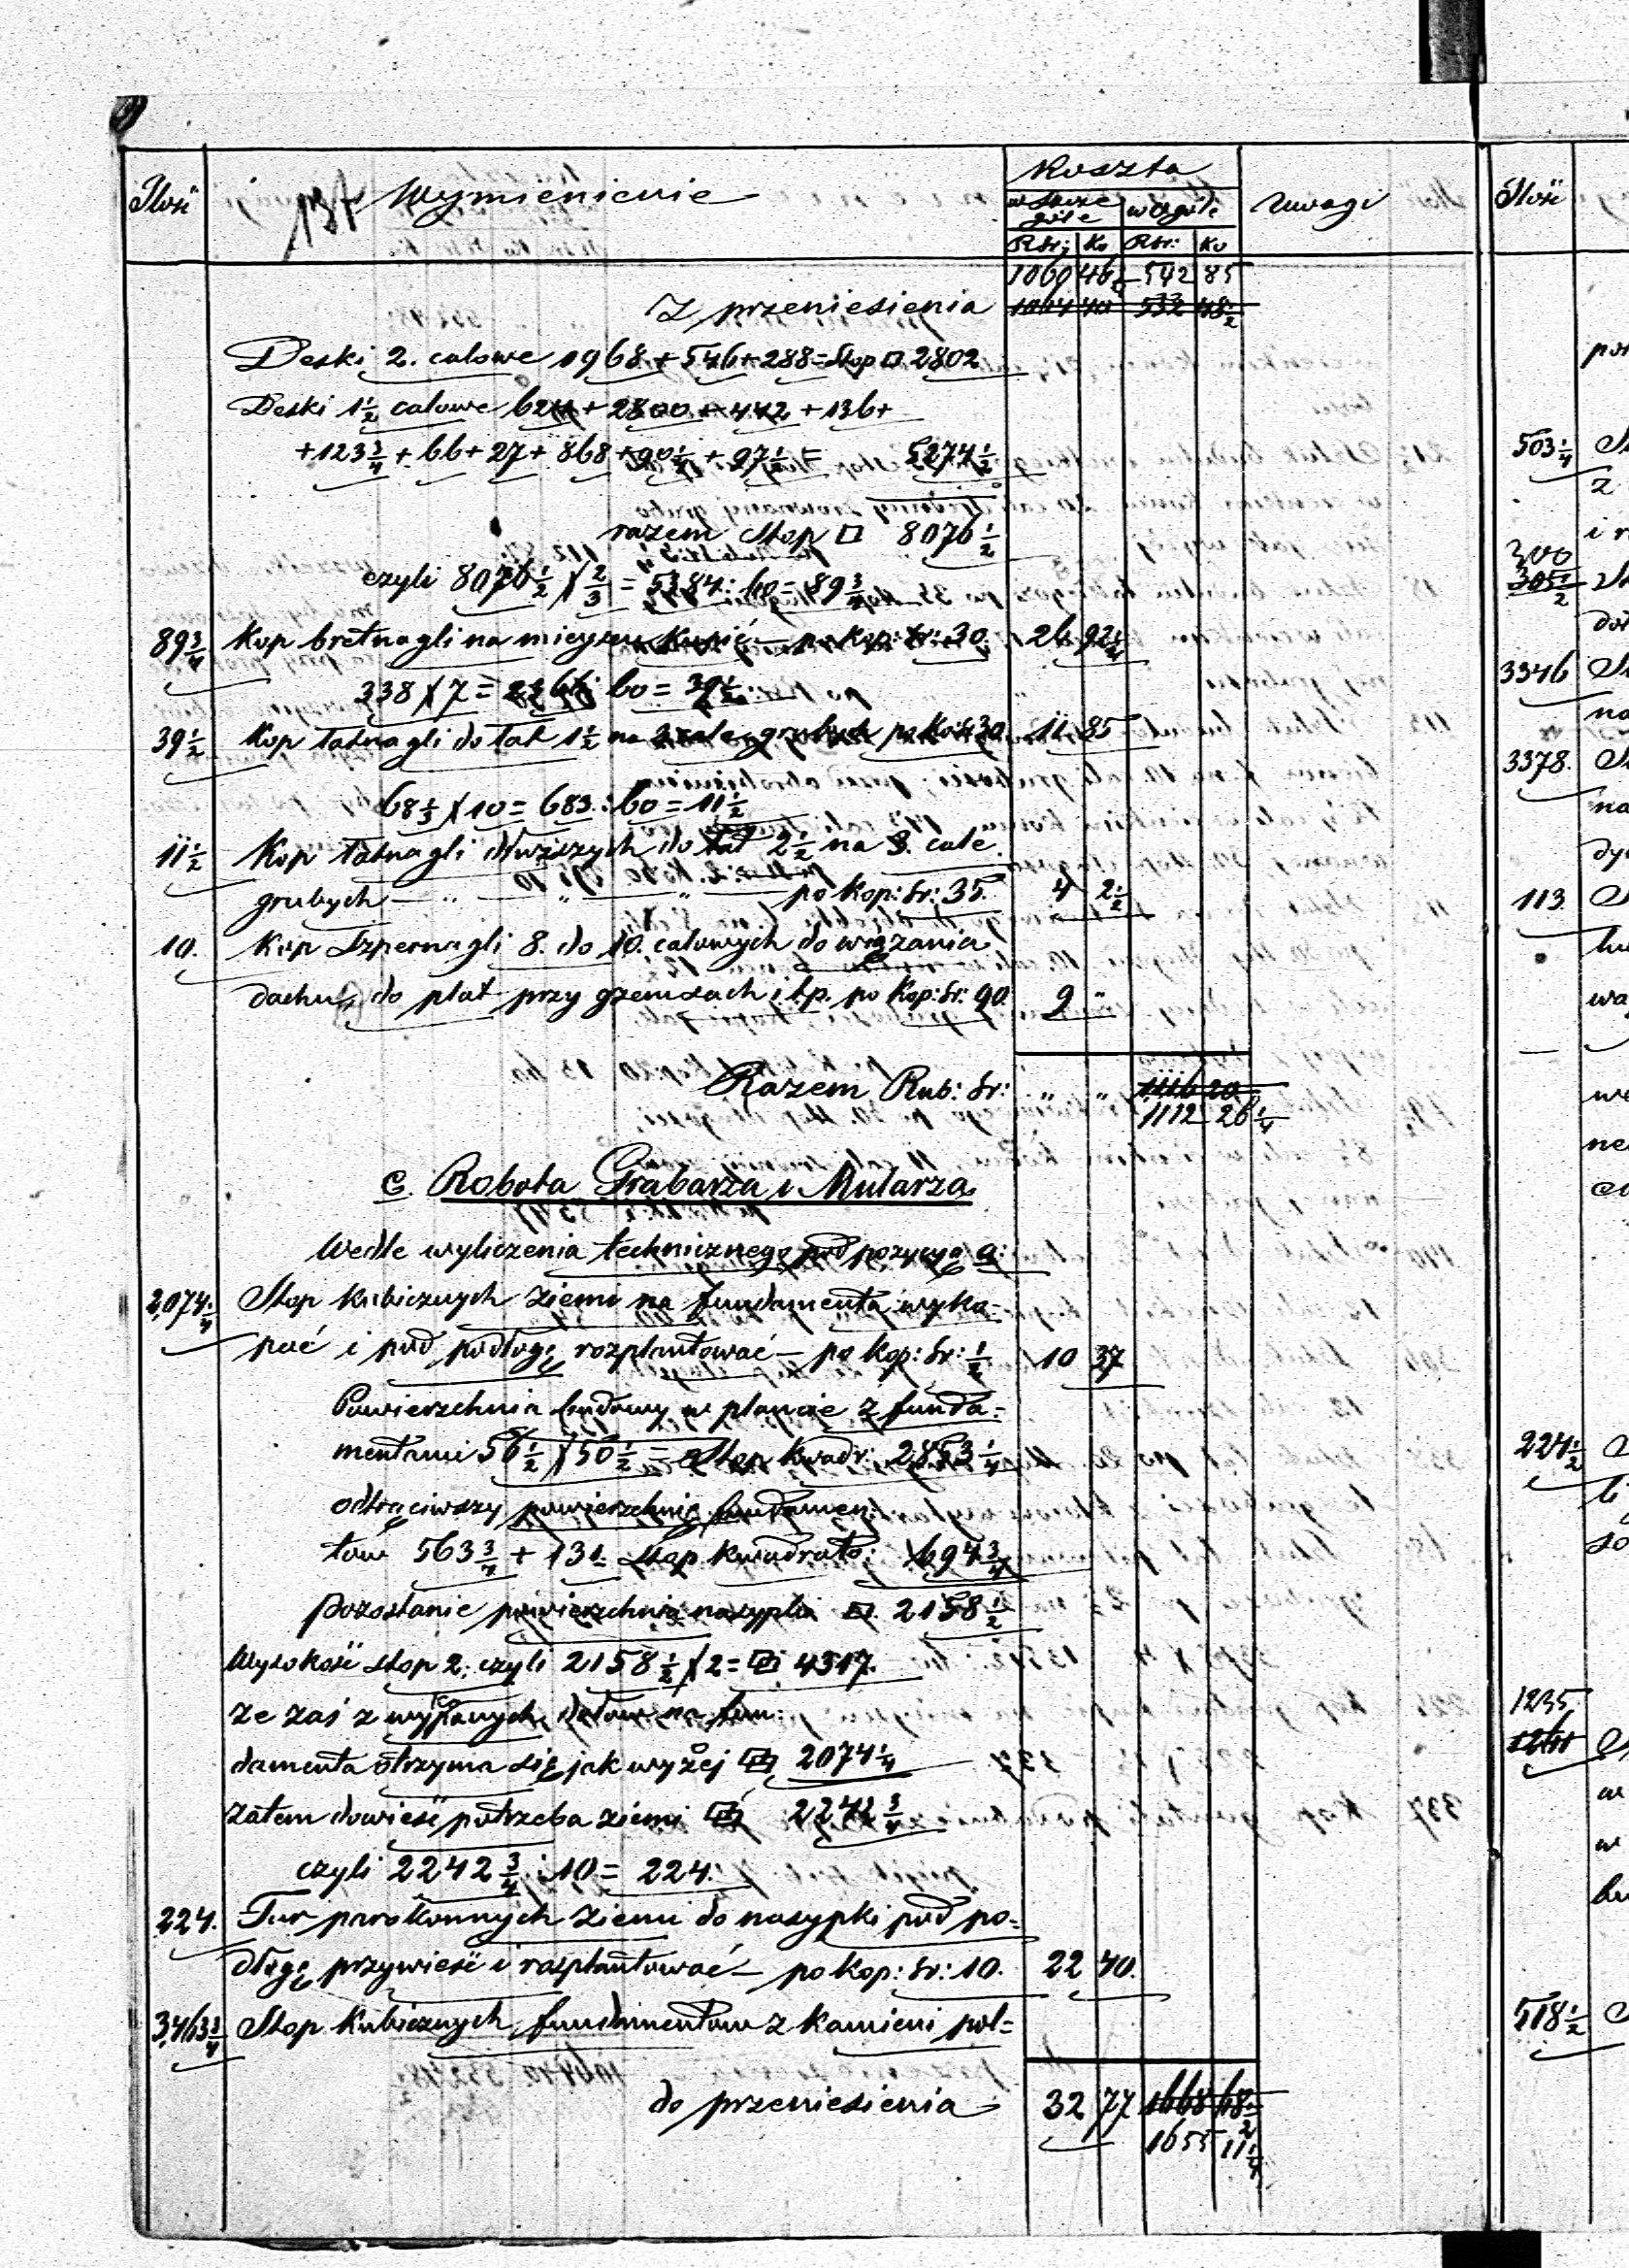 Koszta
Ilość 137 Wymienienie w szczególe w ogóle Uwagi Ilość
Rsr: Ko Rsr: Ko
1060 46 542 85
Z przeniesienia 1064 40 532 48 1/2
Deski 2. calowe 1968 + 546 + 288 = Stop □ 2802
Deski 1 1/2 calowe 624 + 2800 + 442 + 136 +
+ 123 3/4 + 66 + 27 + 868 + 90 1/4 + 97 1/2 = 5274 1/2
503 1/4
razem Stop □ 8076 1/2
czyli 8076 1/2 X 2/3 = 5384 : 60 = 89 3/4
300
305 1/2
89 3/4 Kop bretnagli na miejscu kupić — po kop: sr: 30. 26 92 1/2
338 X 7 = 2366 : 60 = 39 1/2
3346
39 1/2 Kop łatnagli do łat 1 1/2 na 3 cale grubych po Ko: 30 11 85
3378.
68 1/3 X 10 = 683 : 60 = 11 1/2
11 1/2 Kop łatnagli dłuższych do łat 2 1/2 na 3. cale
grubych — " — " — " po Kop: Sr: 35. 4 2 1/2
113
10. Kop Szpernagli 8. do 10. calowych do wiązania
dachu, do płat przy gzemsach i t.p. po Kop: Sr: 90. 9 "
Razem Rub: Sr: " " 1116 20
1112 26 1/4
C. Robota Grabarza i Mularza
Wedle wyliczenia technicznego pod pozycyą a:
2,074 1/4 Stop kubicznych ziemi na fundamenta wyko=
pać i pod podłogę rozplantować — po Kop: Sr: 1/2 10 37
Powierzchnia budowy w planie z funda=
mentami 56 1/2 X 50 1/2 = Stop kwadr: 2853 1/4
224 1/2
odtrąciwszy powierzchnię fundamen:
tów 563 3/4 + 131 Stop kwadrato: 694 3/4
pozostanie powierzchnia nasypki □ 2158 1/2
Wysokość stop 2. czyli 2158 1/2 X 2 = 4317.
że zaś z wykopanych dołów na fun:
1235
1261
damenta otrzyma się jak wyżej 2074 1/4
zatem dowieść potrzeba ziemi 2242 3/4
czyli 2242 3/4 : 10 = 224.
224. Fur parokonnych ziemi do nasypki pod po=
dłogę przywieść i rozplantować — po Kop: Sr: 10. 22 40.
3,463 3/4 Stop Kubicznych fundamentów z kamieni pol=
518 1/2
do przeniesienia 32 77 1668 68 1/2
1655 11 1/4